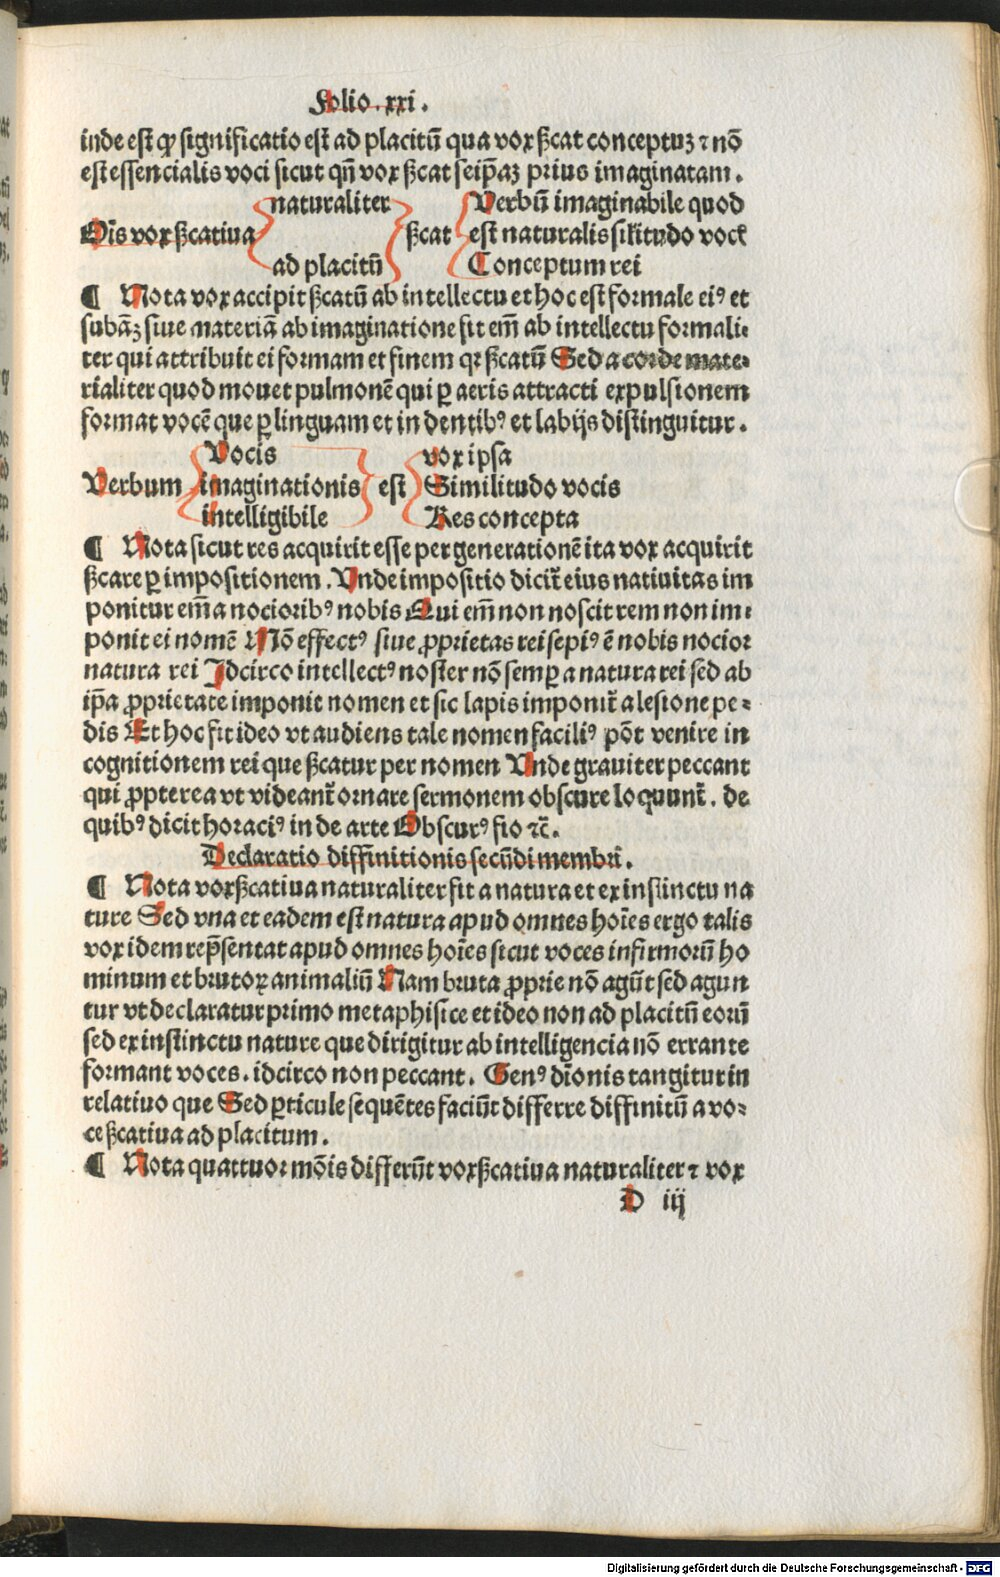 Folio .xxi.
inde est ꝙ significatio est ad placitū qua vox ßcat conceptuꝫ ⁊ nō
est essencialis voci sicut qn̄ vox ßcat seip̄aꝫ prius imaginatam.
naturaliter Verbū imaginabile quod
Oīs vox ßcatiua ßcat est naturalis sil̄itudo vocꝭ
ad placitū Conceptum rei
¶ Nota vox accipit ßcatū ab intellectu et hoc est formale eiꝰ et
subāꝫ siue materiā ab imaginatione fit em̄ ab intellectu formali⸗
ter qui attribuit ei formam et finem qr ßcatū Sed a corde mate⸗
rialiter quod mouet pulmonē qui ꝑ aeris attracti expulsionem
format vocē que ꝑ linguam et in dentibꝰ et labijs distinguitur.
Vocis vox ipsa
Verbum imaginationis est Similitudo vocis
intelligibile Res concepta
¶ Nota sicut res acquirit esse per generationē ita vox acquirit
ßcare ꝑ impositionem. Vnde impositio dicit̄ eius natiuitas im
ponitur em̄ a nocioribꝰ nobis Qui em̄ non noscit rem non im⸗
ponit ei nomē Mō effectꝰ siue ꝓprietas rei sepiꝰ ē nobis nocior
natura rei Idcirco intellectꝰ noster nō semꝑ a natura rei sed ab
ip̄a ꝓprietate imponit nomen et sic lapis imponit̄ a lesione pe⸗
dis Et hoc fit ideo vt audiens tale nomen faciliꝰ pōt venire in
cognitionem rei que ßcatur per nomen Vnde grauiter peccant
qui ꝓpterea vt videant̄ ornare sermonem obscure loquunt̄. de
quibꝰ dicit horaciꝰ in de arte Obscurꝰ fio ⁊c̄.
Declaratio diffinitionis secūdi membri.
¶ Nota vox ßcatiua naturaliter fit a natura et ex instinctu na
ture Sed vna et eadem est natura apud omnes hoīes ergo talis
vox idem rep̄sentat apud omnes hoīes sicut voces infirmorū ho
minum et brutoꝝ animaliū Nam bruta ꝓprie nō agūt sed agun
tur vt declaratur primo metaphisice et ideo non ad placitū eorū
sed ex instinctu nature que dirigitur ab intelligencia nō errante
formant voces. idcirco non peccant. Genꝰ dīonis tangitur in
relatiuo que Sed ꝑticule sequētes faciūt differre diffinitū a vo⸗
ce ßcatiua ad placitum.
¶ Nota quattuor mōis differūt vox ßcatiua naturaliter ⁊ vox
D iij
Digitalisierung gefördert durch die Deutsche Forschungsgemeinschaft - DFG